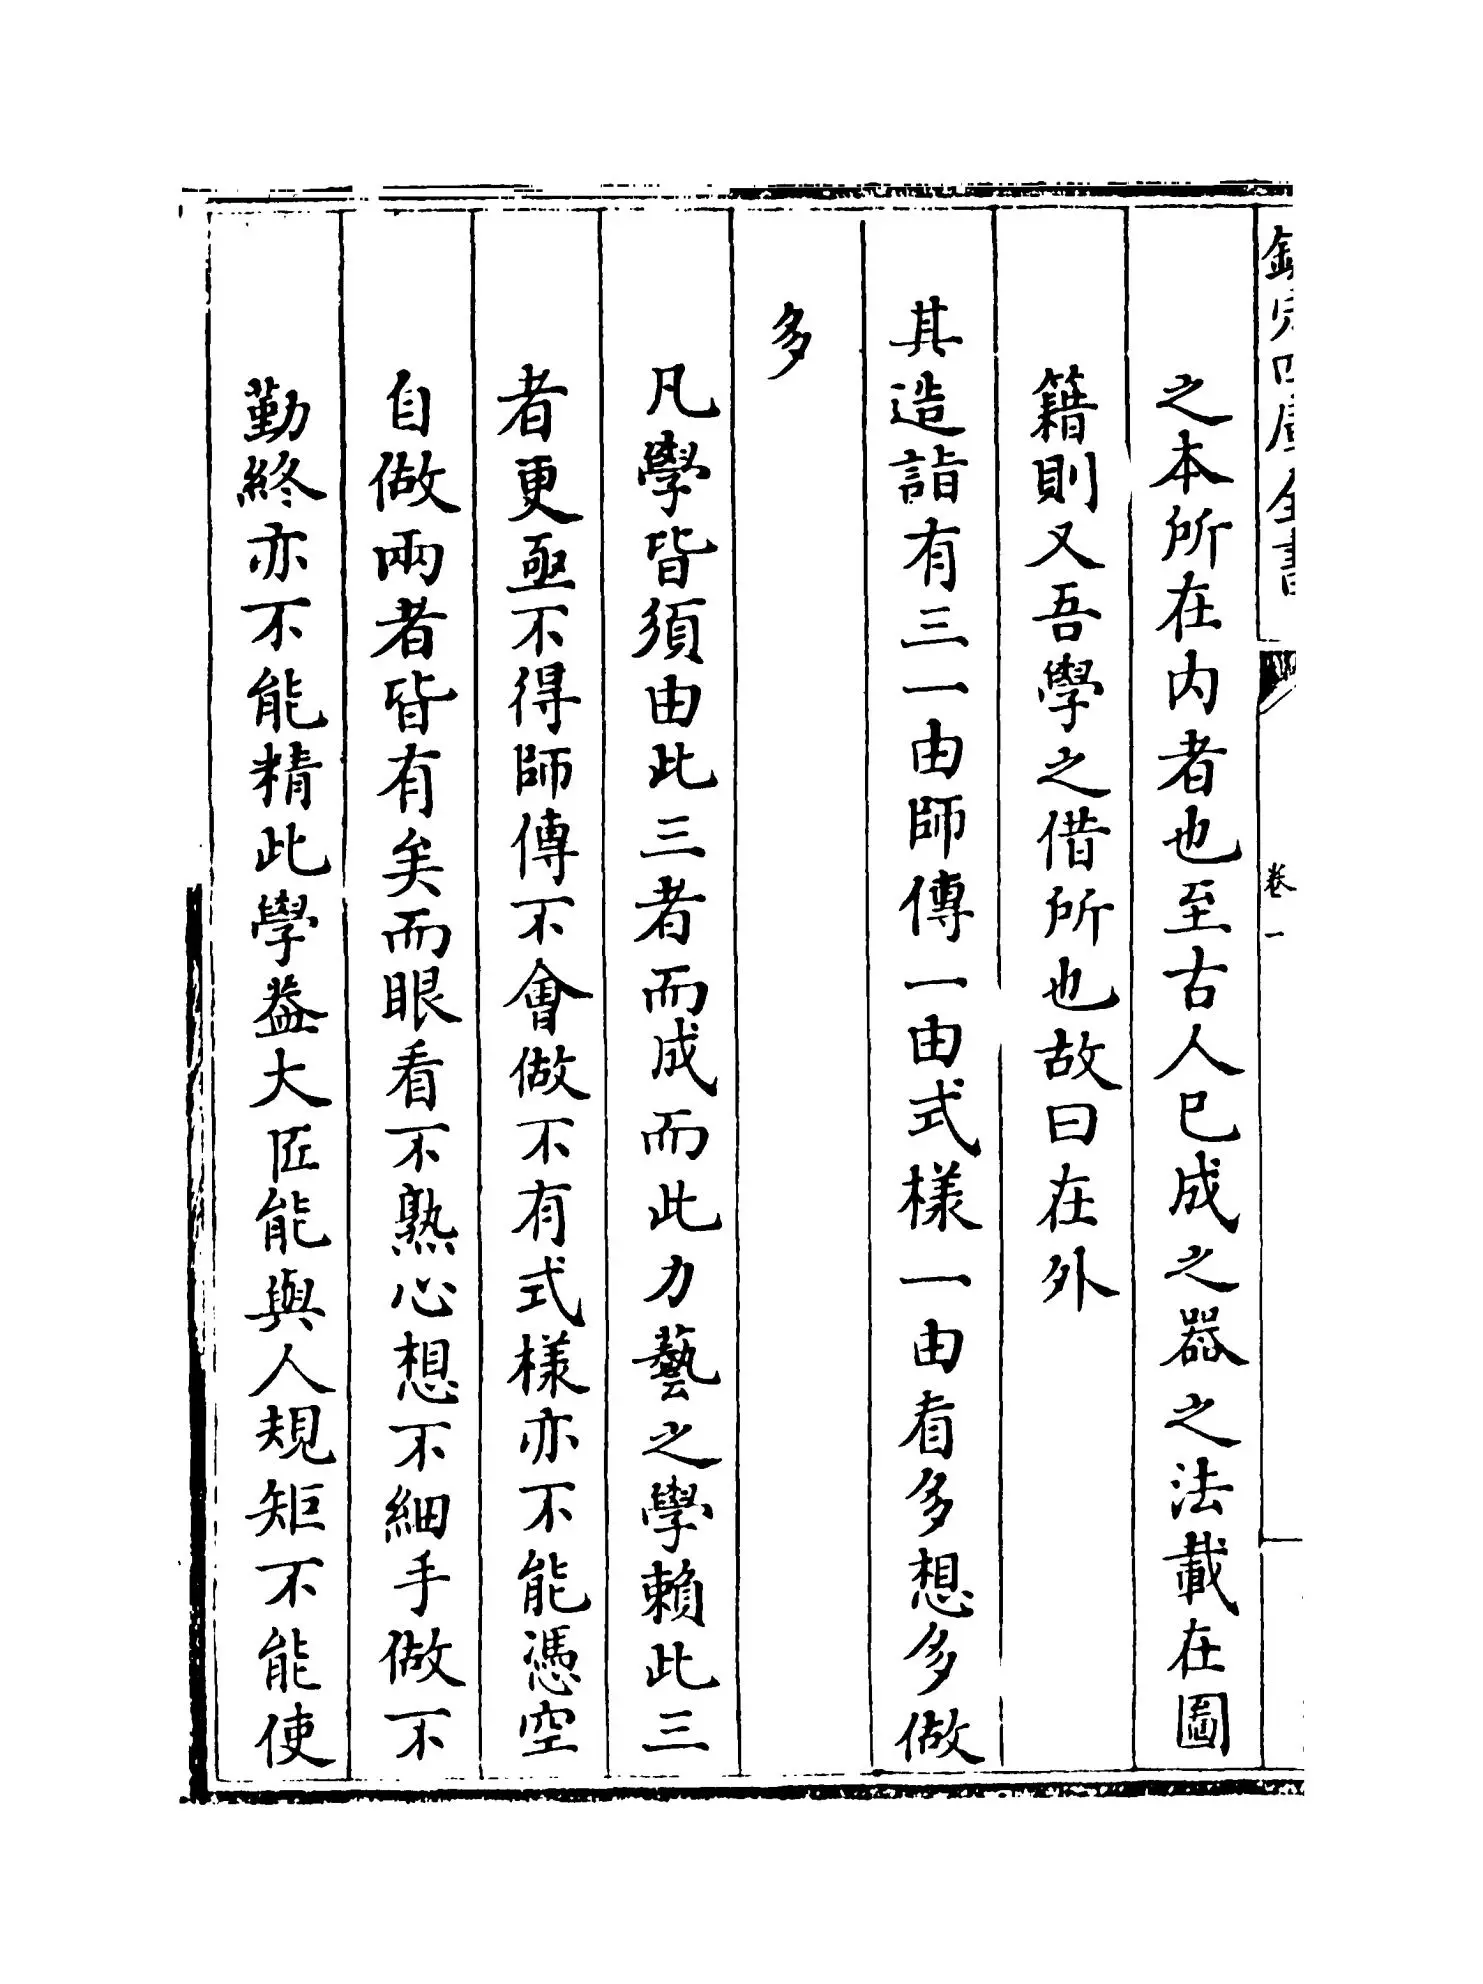 欽定四庫全書
卷一
之本所在内者也至古人已成之器之法載在圖
籍則又吾學之借所也故曰在外
其造詣有三一由師傳一由式樣一由看多想多做
多
凡學皆須由此三者而成而此力藝之學賴此三
者更亟不得師傳不會做不有式樣亦不能憑空
自做兩者皆有矣而眼看不熟心想不細手做不
勤終亦不能精此學葢大匠能與人規矩不能使